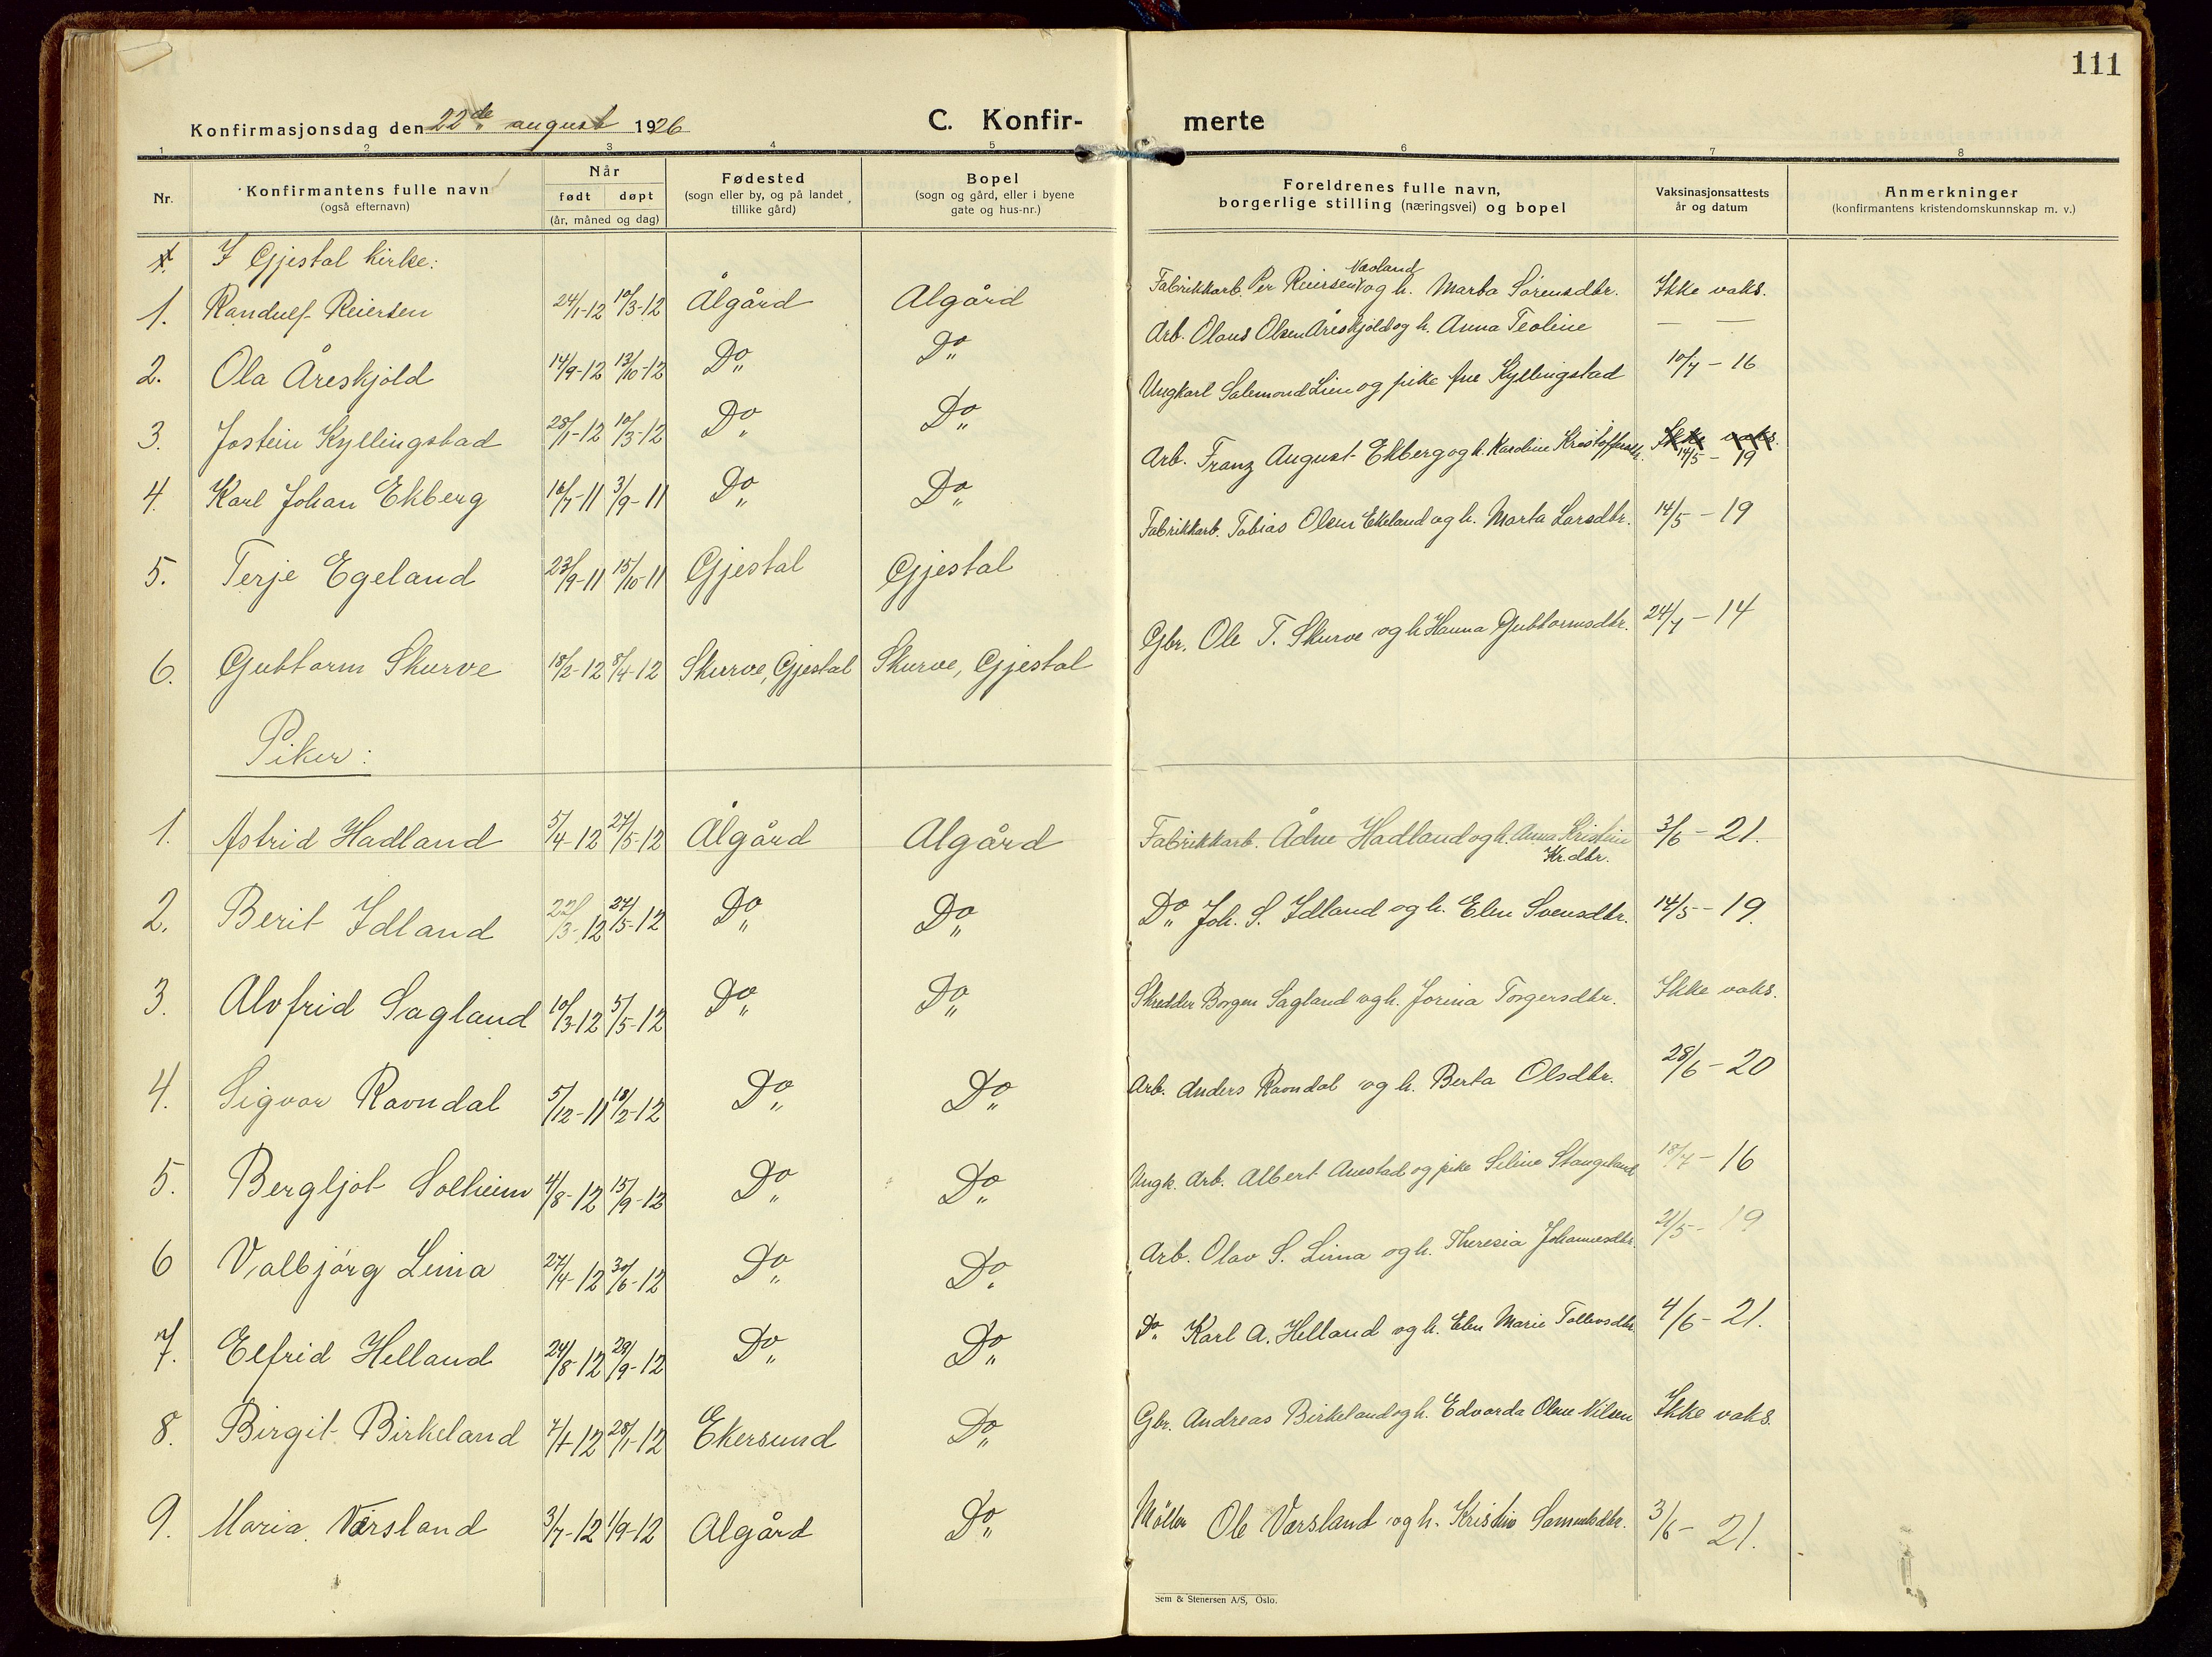 111
Konfirmasjonsdag den 22de august 1926
C. Konfir- merte
1 2 3 4 5 6 7 8
Nr. Konfirmantens fulle navn (også efternavn) Når født døpt (år, måned og dag) Fødested (sogn eller by, og på landet tillike gård) Bopel (sogn og gård, eller i byene gate og hus-nr.) Foreldrenes fulle navn, borgerlige stilling (næringsvei) og bopel Vaksinasjonsattests år og datum Anmerkninger (konfirmantens kristendomskunnskap m. v.)
I Gjestal kirke:
1. Randulf Reiersen 24/1-12 10/3-12 Ålgård Ålgård Fabrikkarb. Per Reiersen Væland og h. Marta Sørensdtr. Ikke vaks.
2. Ola Åreskjold 14/9-12 13/10-12 Do Do Arb. Olaus Olsen Åreskjold og h. Anna Teoline — —
3. Jostein Kyllingstad 28/1-12 10/3-12 Do Do Ungkarl Salemond Lien og pike Ane Kyllingstad 10/7-16
4. Karl Johan Ekberg 16/7-11 3/9-11 Do Do Arb. Franz August Ekberg og h. Karoline Kristoffersdtr. Ikke vaks. 14/5-19
5. Terje Egeland 23/9-11 15/10-11 Gjestal Gjestal Fabrikkarb. Tobias Olsen Ekeland og h. Marta Larsdtr. 14/5-19
6. Guttorm Skurve 18/2-12 8/4-12 Skurve, Gjestal Skurve, Gjestal Gbr. Ole T. Skurve og h. Hanna Guttormsdtr. 24/7-14
Piker:
1. Astrid Hadland 5/4-12 27/5-12 Ålgård Ålgård Fabrikkarb. Ådne Hadland og h. Anna Kristine Kr.dtr. 3/6-21.
2. Berit Idland 22/3-12 27/5-12 Do Do Do Joh. S. Idland og h. Elen Svensdtr. 14/5-19.
3. Alvfrid Sagland 10/3-12 5/5-12 Do Do Skredder Borgen Sagland og h. Jorina Torgersdtr. Ikke vaks.
4. Sigvor Ravndal 5/12-11 18/2-12 Do Do Arb. Anders Ravndal og h. Berta Olsdtr. 28/6-20
5. Bergljot Solheim 4/8-12 15/9-12 Do Do Ungk. Arb. Albert Auestad og pike Seline Stangeland 18/7-16
6 Valbjørg Lima 27/4-12 30/6-12 Do Do Arb. Olav S. Lima og h. Theresia Johannesdtr. 21/5-19
7. Elfrid Helland 24/8-12 29/9-12 Do Do Do Karl A. Helland og h. Elen Marie Tollevsdtr. 4/6-21.
8. Birgit Birkeland 7/1-12 28/1-12 Ekersund Do Gbr. Andreas Birkeland og h. Edvarda Olene Nilsen Ikke vaks.
9. Maria Værsland 3/7-12 1/9-12 Ålgård Do Møller Ole Værsland og h. Kristine Samuelsdtr. 3/6-21.
Sem & Stenersen A/S, Oslo.